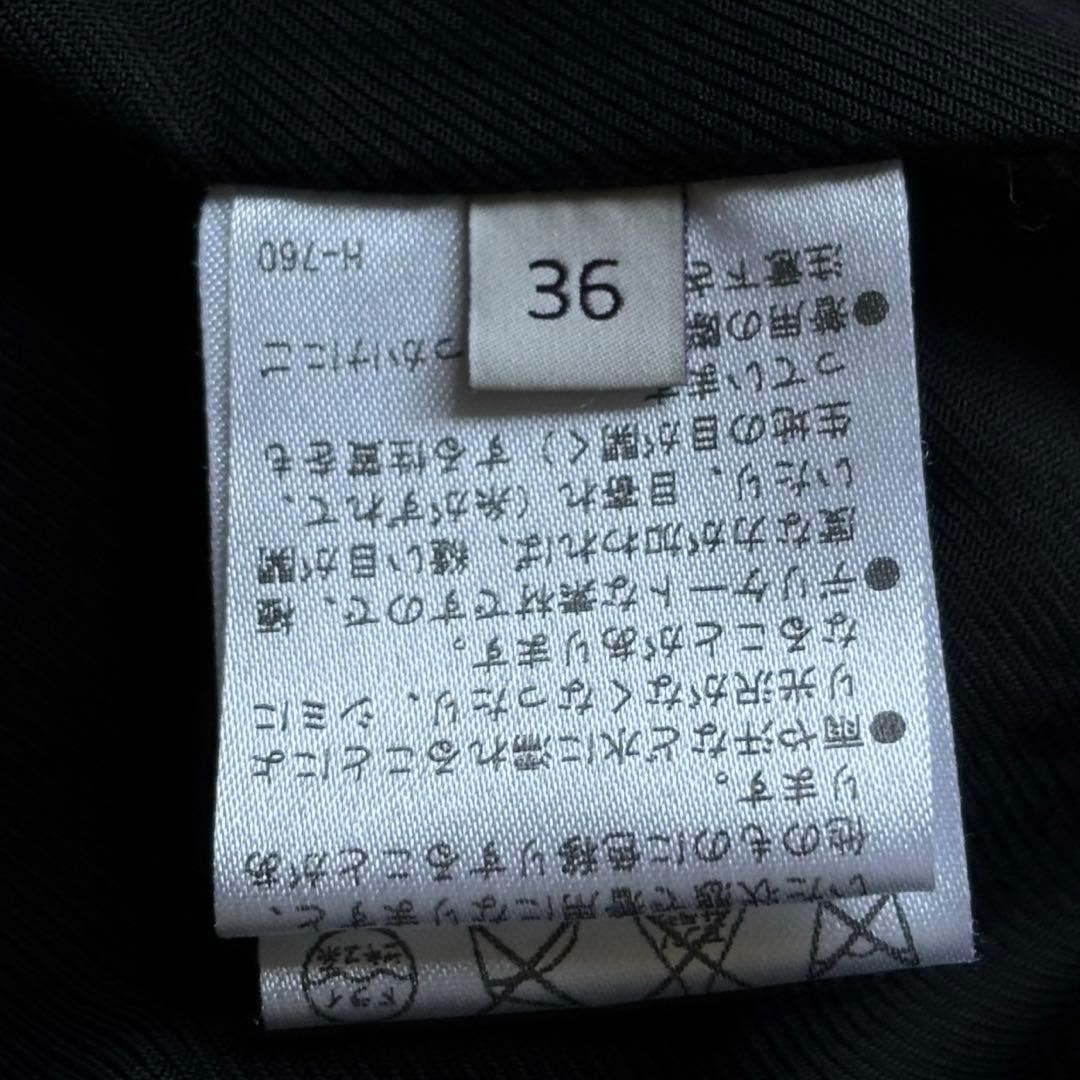 36
ドライ
セキユ系
いた状態で着用になりますと、
他のものに色移りすることがあ
ります。
●雨や汗など水に濡れることによ
り光沢がなくなったり、シミに
なることがあります。
●デリケートな素材ですので、極
度な力が加われば、縫い目が開
いたり、目寄れ(糸がずれて、
生地の目が開く)する性質をも
っています
●着用の際 っかけにご
注意下さ
H-760